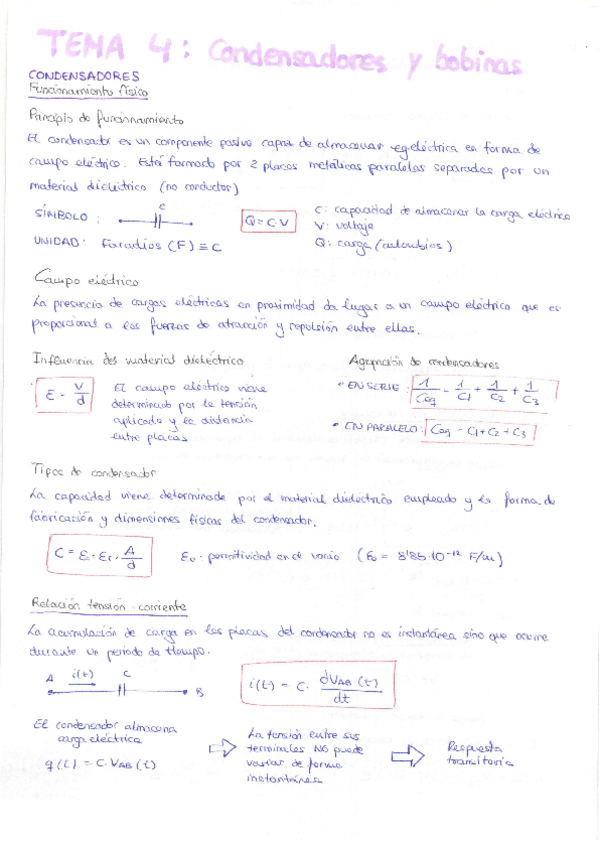 TEMA 4: Condensadores y bobinas
CONDENSADORES
Funcionamiento físico
Principio de funcionamiento
El condensador es un componente pasivo capaz de almacenar eg.eléctrica en forma de
campo eléctrico. Está formado por 2 placas metálicas paralelas separadas por un
material dieléctrico (no conductor)
SÍMBOLO :
C
Q = C·V
C: capacidad de almacenar la carga eléctrica
V: voltaje
Q: carga (culombios)
UNIDAD: Faradios (F) ≡ C
Campo eléctrico
La presencia de cargas eléctricas en proximidad da lugar a un campo eléctrico que es
proporcional a las fuerzas de atracción y repulsión entre ellas.
Influencia del material dieléctrico
E = V/d
El campo eléctrico viene
determinado por la tensión
aplicada y la distancia
entre placas
Agrupación de condensadores
• EN SERIE : 1/Ceq = 1/C1 + 1/C2 + 1/C3
• EN PARALELO: Ceq = C1+C2+C3
Tipos de condensador
La capacidad viene determinada por el material dieléctrico empleado y la forma de
fabricación y dimensiones físicas del condensador.
C = ε · εr · A/d
εo - permitividad en el vacío (εo = 8'85·10⁻¹² F/m)
Relación tensión - corriente
La acumulación de carga en las placas del condensador no es instantánea sino que ocurre
durante un periodo de tiempo.
A i(t) C B
i(t) = C · dVAB(t)/dt
El condensador almacena
carga eléctrica
q(t) = C·VAB(t)
La tensión entre sus
terminales NO puede
variar de forma
instantánea
Respuesta
transitoria